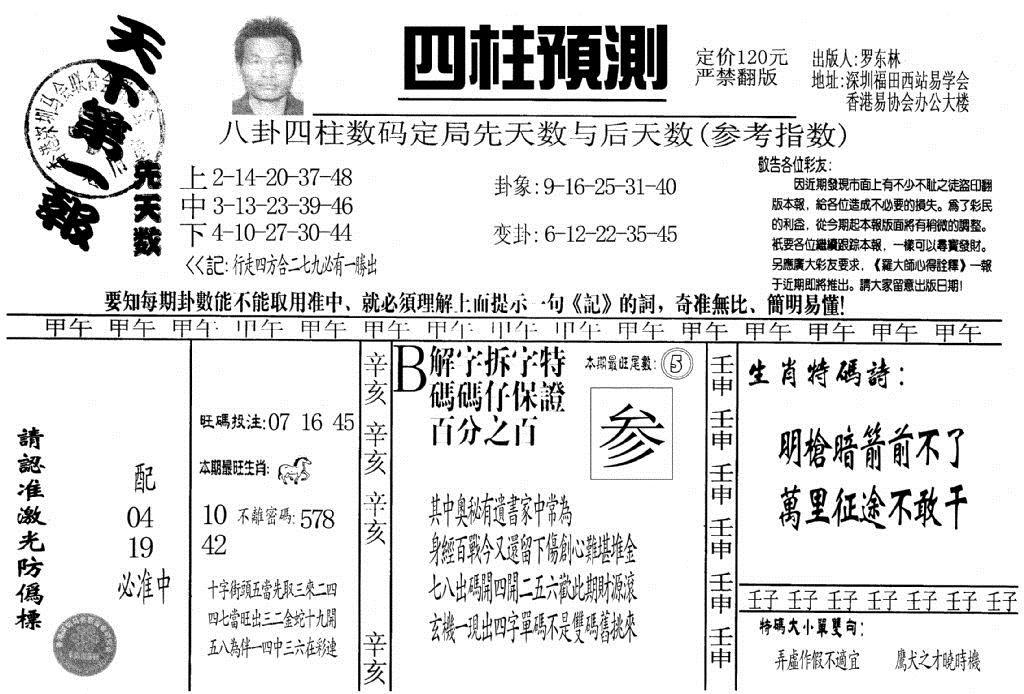 天下第一報
四柱預測
定价120元
严禁翻版
出版人:罗东林
地址:深圳福田西站易学会
香港易协会办公大楼
八卦四柱数码定局先天数与后天数(参考指数)
先天数
上 2-14-20-37-48
中 3-13-23-39-46
下 4-10-27-30-44
<<記:行走四方合二七九必有一勝出
卦象:9-16-25-31-40
变卦:6-12-22-35-45
敬告各位彩友:
因近期發現市面上有不少不恥之徒盜印翻
版本報,給各位造成不必要的損失。爲了彩民
的利益,從今期起本報版面將有稍微的調整。
衹要各位繼續跟踪本報,一樣可以尋寶發財。
另應廣大彩友要求,《羅大師心得詮釋》一報
于近期即將推出。請大家留意出版日期!
要知每期卦數能不能取用准中、就必須理解上面提示一句《記》的詞,奇准無比、簡明易懂!
甲午 甲午 甲午 甲午 甲午 甲午 甲午 甲午 甲午 甲午 甲午 甲午 甲午 甲午 甲午
請認准激光防僞標
配
04
19
必准中
旺碼投注:07 16 45
本期最旺生肖:
10 不離密碼:578
42
十字街頭五當先取三來二四
四七當旺出三二金蛇十九開
五八為伴一四中三六在彩連
辛亥 辛亥 辛亥 辛亥
B 解字拆字特
碼碼仔保證
百分之百
本期最旺尾數:5
参
其中奧秘有遺書家中常為
身經百戰今又還留下傷創心難堪堆金
七八出碼開四開二五六歡此期財源滾
玄機一現出四字單碼不是雙碼舊挑來
壬申 壬申 壬申 壬申 壬申 壬申
生肖特碼詩:
明槍暗箭前不了
萬里征途不敢干
壬子 壬子 壬子 壬子 壬子 壬子 壬子
特碼大小單雙句:
弄虛作假不適宜 鷹犬之才曉時機